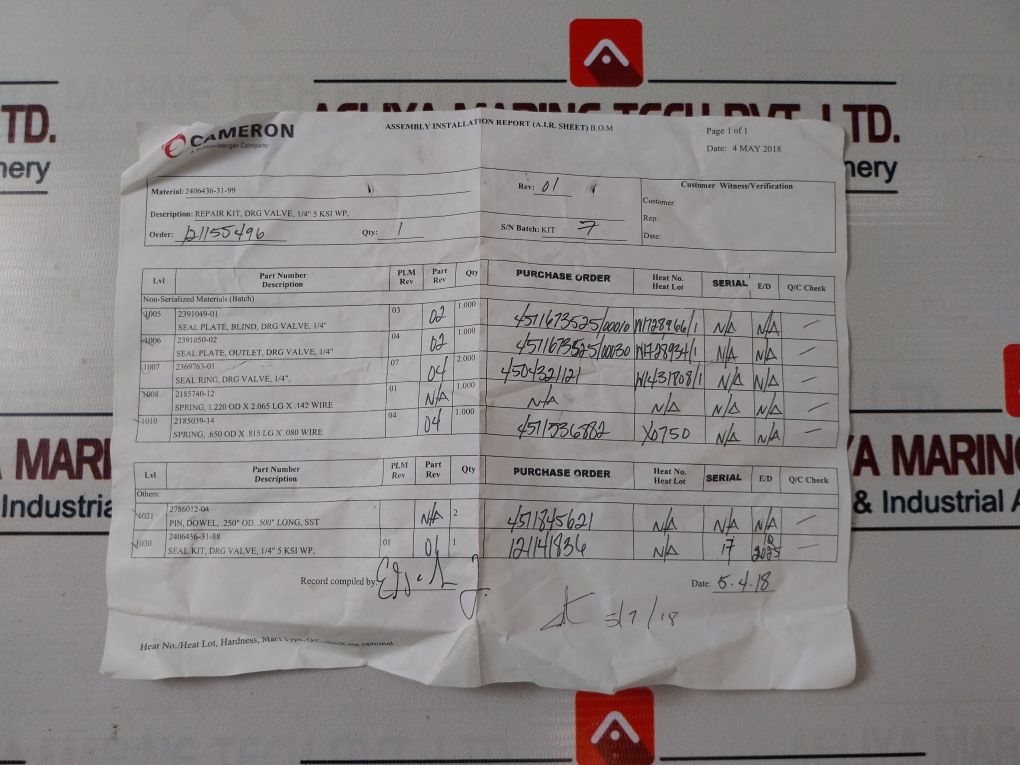 TD.
ASLIYA MARINE TECH PVT. LTD.
nery
nery
CAMERON
A Schlumberger Company
ASSEMBLY INSTALLATION REPORT (A.I.R. SHEET) B.O.M
Page 1 of 1
Date: 4 MAY 2018
Material: 2406436-31-99
Rev: 01
Customer Witness/Verification
Description: REPAIR KIT, DRG VALVE, 1/4" 5 KSI WP,
Customer:
Order: 121155496 Qty: 1 S/N Batch: KIT 7
Rep:
Date:
Lvl Part Number Description PLM Rev Part Rev Qty PURCHASE ORDER Heat No. Heat Lot SERIAL E/D Q/C Check
Non-Serialized Materials (Batch)
1005 2391049-01 03 02 1.000 4511673525/00010 W1728966/1 N/A N/A
SEAL PLATE, BLIND, DRG VALVE, 1/4"
1006 2391050-02 04 02 1.000 4511673525/00030 N/A N/A
SEAL PLATE, OUTLET, DRG VALVE, 1/4"
1007 2369763-01 07 04 2.000 4504321121 W1431808/1 N/A N/A
SEAL RING, DRG VALVE, 1/4",
1008 2185740-12 01 N/A 1.000 N/A N/A N/A N/A
SPRING, 1.220 OD X 2.065 LG X .142 WIRE
1010 2185039-14 04 04 1.000 4511536882 X0750 N/A N/A
SPRING, .650 OD X .815 LG X .080 WIRE
Lvl Part Number Description PLM Rev Part Rev Qty PURCHASE ORDER Heat No. Heat Lot SERIAL E/D Q/C Check
Others:
1021 2786012-04 N/A 2 4511845621 N/A N/A N/A
PIN, DOWEL, .250" OD, .500" LONG, SST
1030 2406436-31-88 01 01 1 121141836 N/A 17 2025
SEAL KIT, DRG VALVE, 1/4" 5 KSI WP,
Record compiled by:
Date: 5.4.18
5/7/18
Heat No./Heat Lot, Hardness, Mat'l Type, Q/C check are optional
A MARI
Industria
YA MARINE
& Industrial A